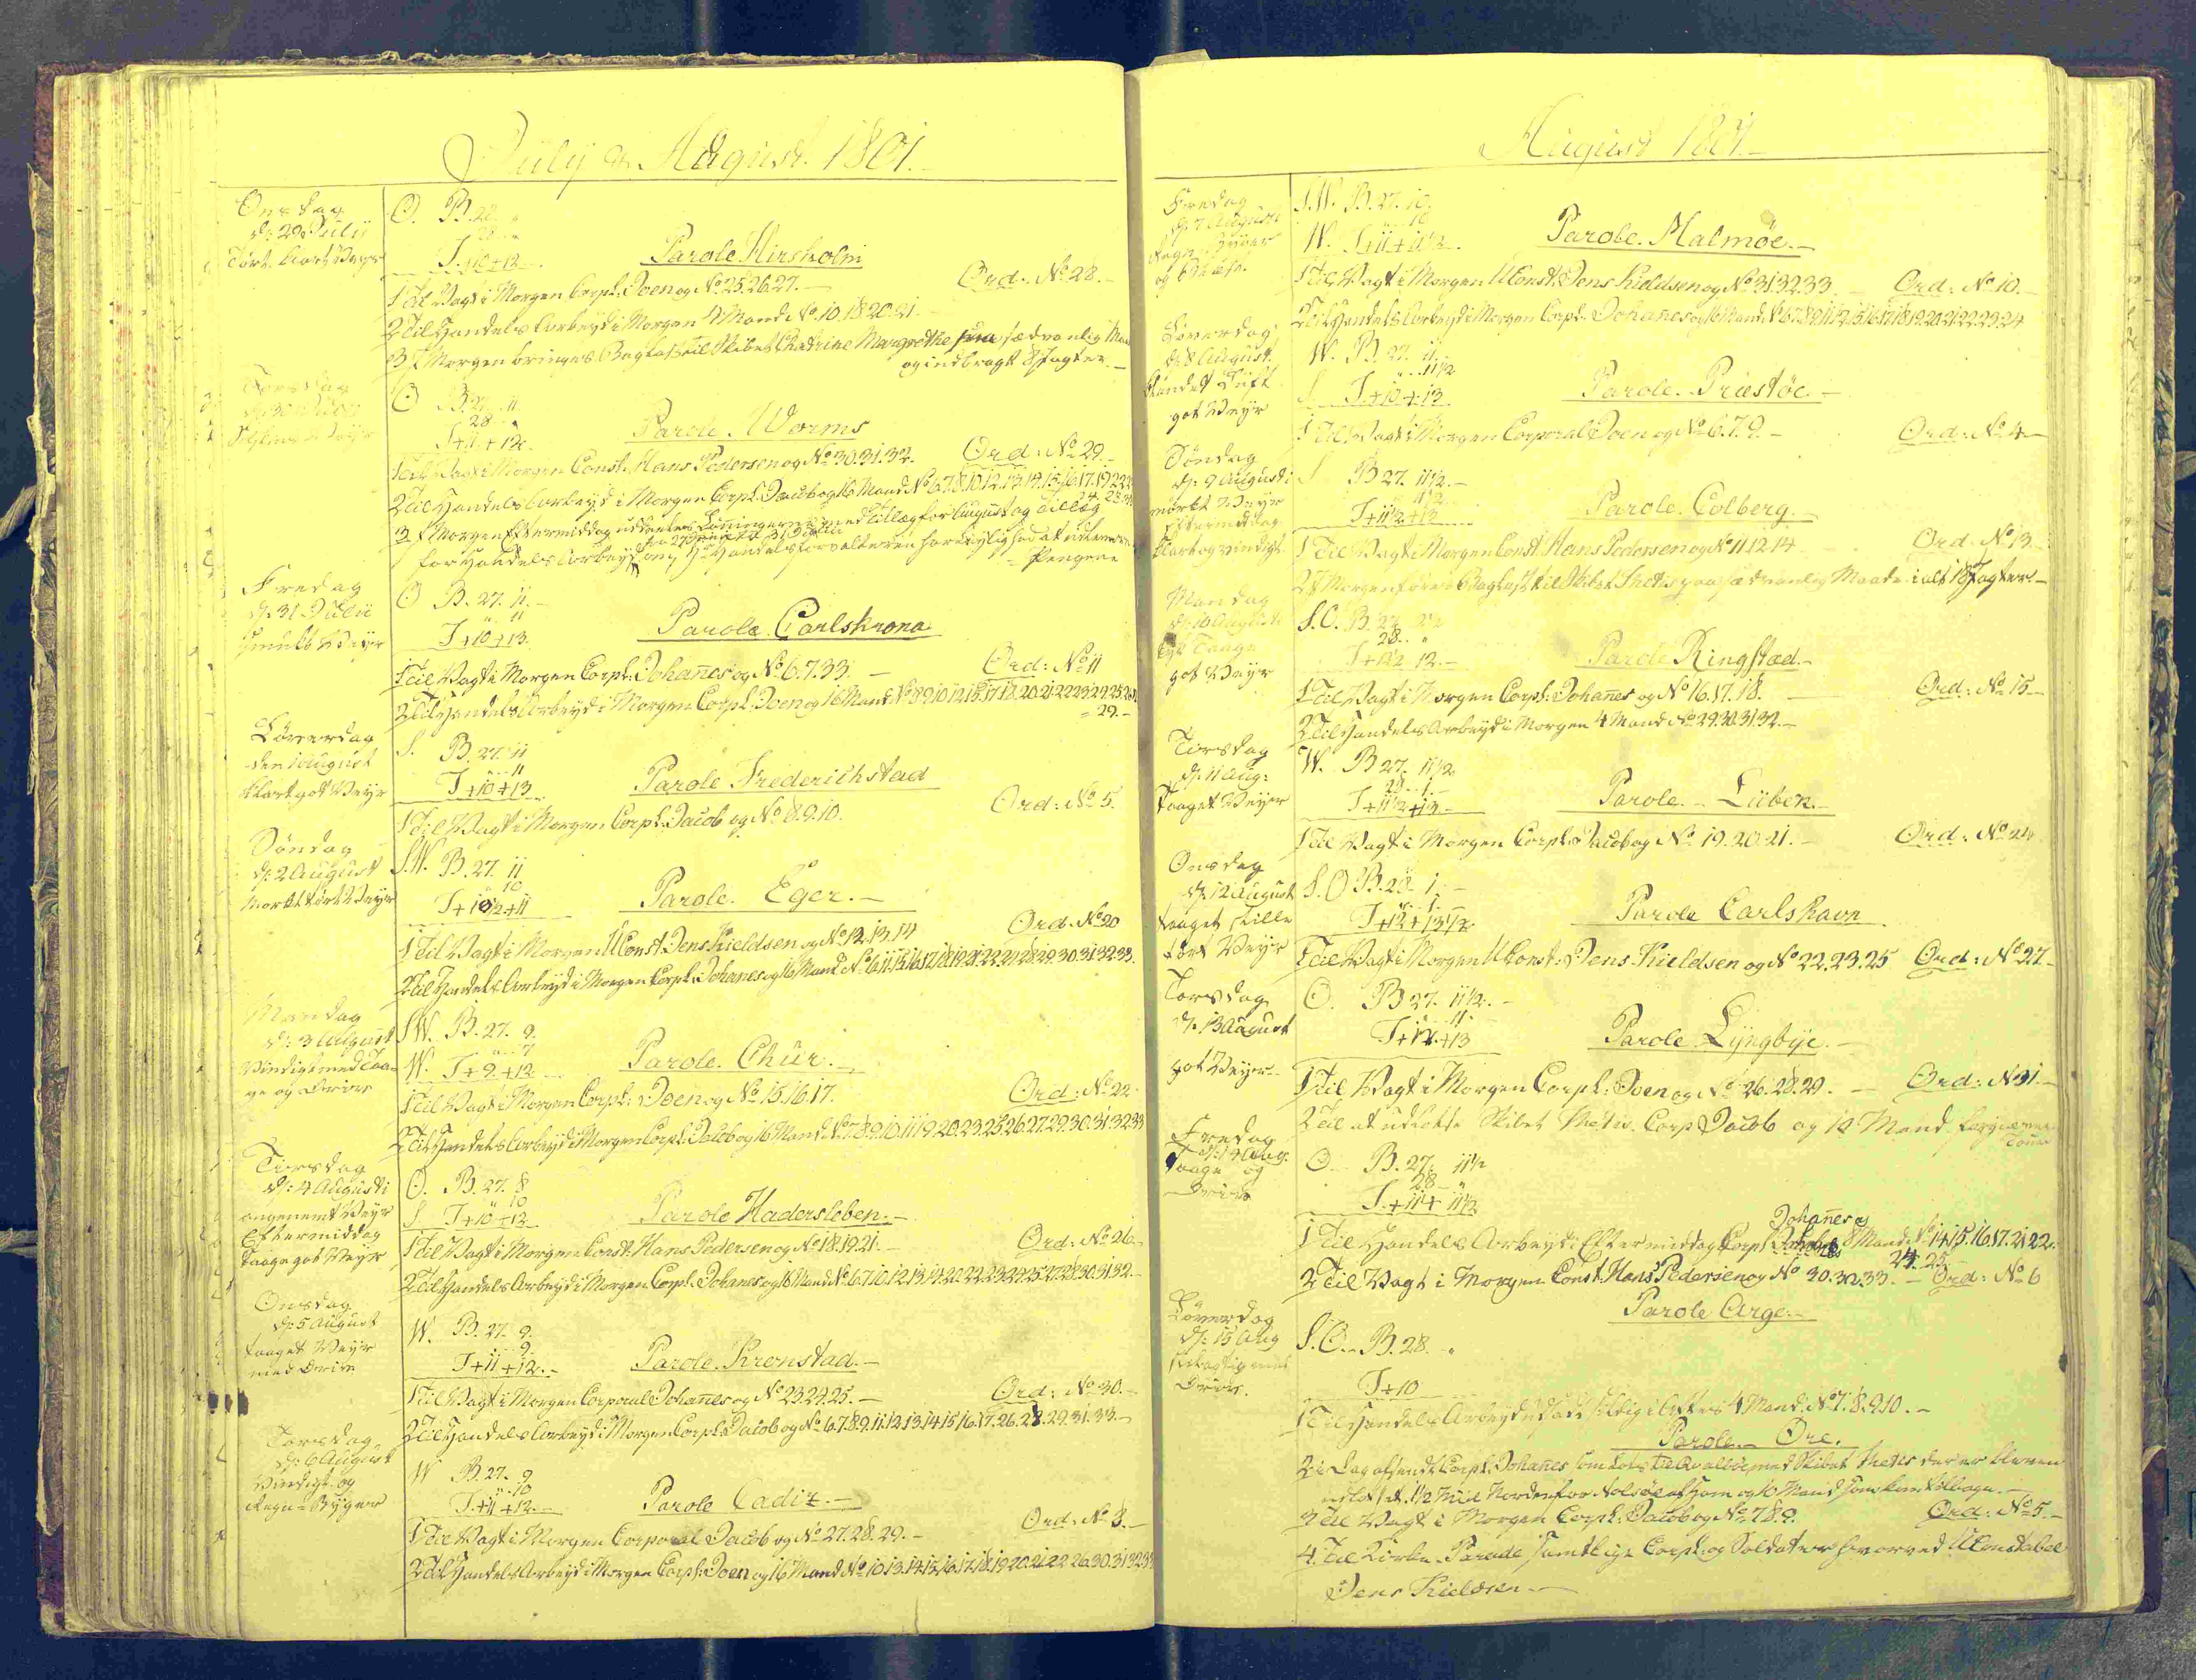 July & August. 1801.
Onsdag
d: 29 Julii
Tört klart Veyr
O. B. 28. "
28. "
T. +10+12.
Parole Hirsholm
1 Til Vagt i Morgen Corpl: Joen og No 25.26.27. —
Ord: No 28. —
2 Til Handels Arbeyd i Morgen 4 Mand No 10.18.20.21.
3 I Morgen bringes Baglast til Skibet Chatrine Margrethe paa sædvanlig Maa
og indbragt 8 Jagter. —
Torsdag
d: 30 Julii
O B. 27. 11.
28 "
T+11+12.
Parole. Worms
1 Til Vagt i Morgen Const: Hans Pedersen og No 30.31.32.
Ord: No 29. —
2 Til Handels Arbeyd i Morgen Corpl: Jacob og 16 Mand No 6.7.8.10.12.13.14.15.16.17.19.22.
3 I Morgen Eftermiddag uddeeles Lönningerne med Tillæg for August og Tillæg
for Handels Arbeyd fra 27 Junii til 31 Julii
om Hr Handelsforvalteren har leylighed at udlevere
= Pengene
Fredag
d: 31 Julii
smukt Veyr
O B. 27. 11. —
" 11
T+10+13.
Parole. Carlskrona
1 Til Vagt i Morgen Corpl: Johanes og No 6.7.33. —
Ord: No 11
2 Til Handels Arbeyd i Morgen Corpl: Joen og 16 Mand No 8.9.10.12.15.17.18.20.21.22.23.24.25.26.
= 29. —
Löverdag
den 1 August
klart got Veyr
S. B. 27. 11
" 11
T+10+13
Parole Frederichstad
1 Til Vagt i Morgen Corpl: Jacob og No 8.9.10.
Ord: No 5.
Söndag
d: 2 August
Morkt tört Veyr
S.W. B. 27. 11
" 10
T+10½+11
Parole. Eger. —
1 Til Vagt i Morgen UConst. Jens Kieldsen og No 12.13.14
Ord. No 20
2 Til Handels Arbeyd i Morgen Corpl: Johanes og 16 Mand No 6.11.15.16.17.18.19.21.22.27.28.29.30.31.32.33.
Mandag
d: 3 August
Vindigt med Taa=
ge og Drive
SW. B. 27. 9.
" 7
W. T+9.+12
Parole. Chür. —
1 Til Vagt i Morgen Corpl: Joen og No 15.16.17.
Ord: No 22
2 Til Handels Arbeyd i Morgen Corpl: Jacob og 16 Mand No 7.8.9.10.11.19.20.23.25.26.27.29.30.31.32.33
Tirsdag
d: 4 Augusti
angenemt Veyr
Eftermiddag
Taage got Veyr
O. B. 27. 8
" 10
S T+10+12
Parole Hadersleben. —
1 Til Vagt i Morgen Const: Hans Pedersen og No 18.19.21. —
Ord: No 26
2 Til Handels Arbeyd i Morgen Corpl. Johanes og 16 Mand No 6.7.10.12.13.14.20.22.23.24.25.27.28.30.31.32. —
Onsdag
d: 5 August
taaget Veyr
med Drive
W. B. 27. 9.
" 9.
T+11+12. —
Parole. Kronstad. —
1 Til Vagt i Morgen Corporal Johanes og No 23.24.25. —
Ord: No 30. —
2 Til Handels Arbeyd i Morgen Corpl: Jacob og No 6.7.8.9.11.12.13.14.15.16.17.26.28.29.31.33. —
Torsdag
d: 6 August
Vindigt og
Regn=Byger
W B. 27. 9
" 10
T. +11+12. —
Parole Cadiz. —
1 Til Vagt i Morgen Corporal Jacob og No 27.28.29. —
Ord: No 8. —
2 Til Handels Arbeyd i Morgen Corpl: Joen og 16 Mand No 10.13.14.15.16.17.18.19.20.21.22.26.30.31.32.33
August 1801. —
Fredag
d: 7 Augusti
Regn Byger
og Blæst.
S.W. B. 27. 10.
" 10
W. T+11+11½.
Parole. Malmöe. —
1 Til Vagt i Morgen UConst: Jens Kieldsen og No 31.32.33. —
Ord: No 10. —
2 Til Handels Arbeyd i Morgen Corpl: Johanes og 16 Mand No 6.7.8.9.11.12.15.16.17.18.19.20.21.22.23.24
Löverdag
d: 8 August.
blandet Luft
got Veyr
W. B. 27. 11.
" 11½
S T+10+13
Parole. Præstöe. —
1 Til Vagt i Morgen Corporal Joen og No 6.7.9. —
Ord: No 4. —
Söndag
d: 9 Augusti
mörkt Veyr
Eftermiddag
klart og vindigt
S B 27. 11½. —
" 11½
T+11½+13
Parole. Colberg. —
1 Til Vagt i Morgen Const: Hans Pedersen og No 11.12.14
Ord. No 13. —
2 I Morgen föres Baglast til Skibet Thetis paa sædvanlig Maade i alt 18 Jagter. —
Mandag
d: 10 Augusti
Tyk Taage
got Veyr
S.O. B. 27.
28. "
T+12½ 12. —
Parole Ringstad. —
1 Til Vagt i Morgen Corpl: Johanes og No 16.17.18. —
Ord: No 15 —
2 Til Handels Arbeyd i Morgen 4 Mand No 29.30.31.32. —
Tirsdag
d: 11 Aug:
Taaget Veyr
W. B 27. 11½
28. 1. —
T+11½+13 —
Parole. — Lübek. —
1 Til Vagt i Morgen Corpl: Jacob og No 19.20.21. —
Ord: No 24
Onsdag
d: 12 August
taaget stille
tört Veyr
S.O B. 28. 1. —
" 1. —
T+12+13½
Parole Carlshavn
1 Til Vagt i Morgen UConst: Jens Kieldsen og No 22.23.25
Ord: No 27 —
Torsdag
d: 13 August
got Veyr. —
O. B 27. 11½. —
" 11. —
T+12.+13
Parole Lÿngbÿe. —
1 Til Vagt i Morgen Corpl: Joen og No 26.28.29. —
Ord: No 31. —
2 Til at udlodse Skibet Thetis. Corp Jacob og 10 Mand
Fredag
d: 14 Aug:
Taage og
Drive
O. B. 27. 11½
28 "
T. +11+11½
1 Til Handels Arbeyd i Eftermiddag Corpl Johanes og 8 Mand No 14.15.16.17.21.22.
24. 25 —
2 Til Vagt i Morgen Const. Hans Pedersen og No 30.32.33. — Ord: No 6
Parole Arge. —
Löverdag
d: 15 Aug
med
Drive.
S.O. B. 28. "
T+10
4 Mand: No 7.8.9.10. —
Parole. — Öre.
2 i Dag afsendt Corpl: Johanes som Lods til med Skibet Thetis der er bleven
udlodset 1½ Miil Norden for Nolsöe af Joen og 10 Mand som kom tilbage. —
3 Til Vagt i Morgen Corpl: Jacob og No 7.8.9.
Ord: No 5. —
4. Til Kirke-Parade samtlige Corpl: og Soldater hvorved UConstabel
Jens Kieldsen —